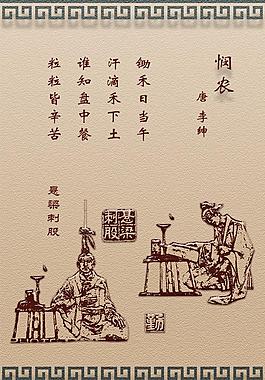 悯农
唐 李绅
锄禾日当午
汗滴禾下土
谁知盘中餐
粒粒皆辛苦
悬梁刺股
悬梁
刺股
勤